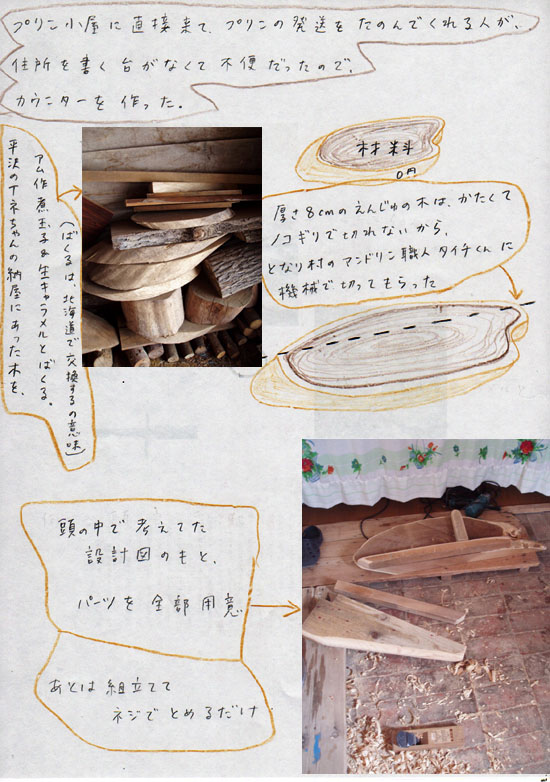 プリン小屋に直接来て、プリンの発送をたのんでくれる人が、
住所を書く台がなくて不便だったので、
カウンターを作った。
材料
0円
平沢のイネちゃんの納屋にあった木を、
アム作煮玉子&生キャラメルとばくる。
(ばくるは、北海道で交換するの意味)
厚さ8cmのえんじゅの木は、かたくて
ノコギリで切れないから、
となり村のマンドリン職人タイチくんに
機械で切ってもらった
頭の中で考えてた
設計図のもと、
パーツを全部用意
あとは組立てて
ネジでとめるだけ